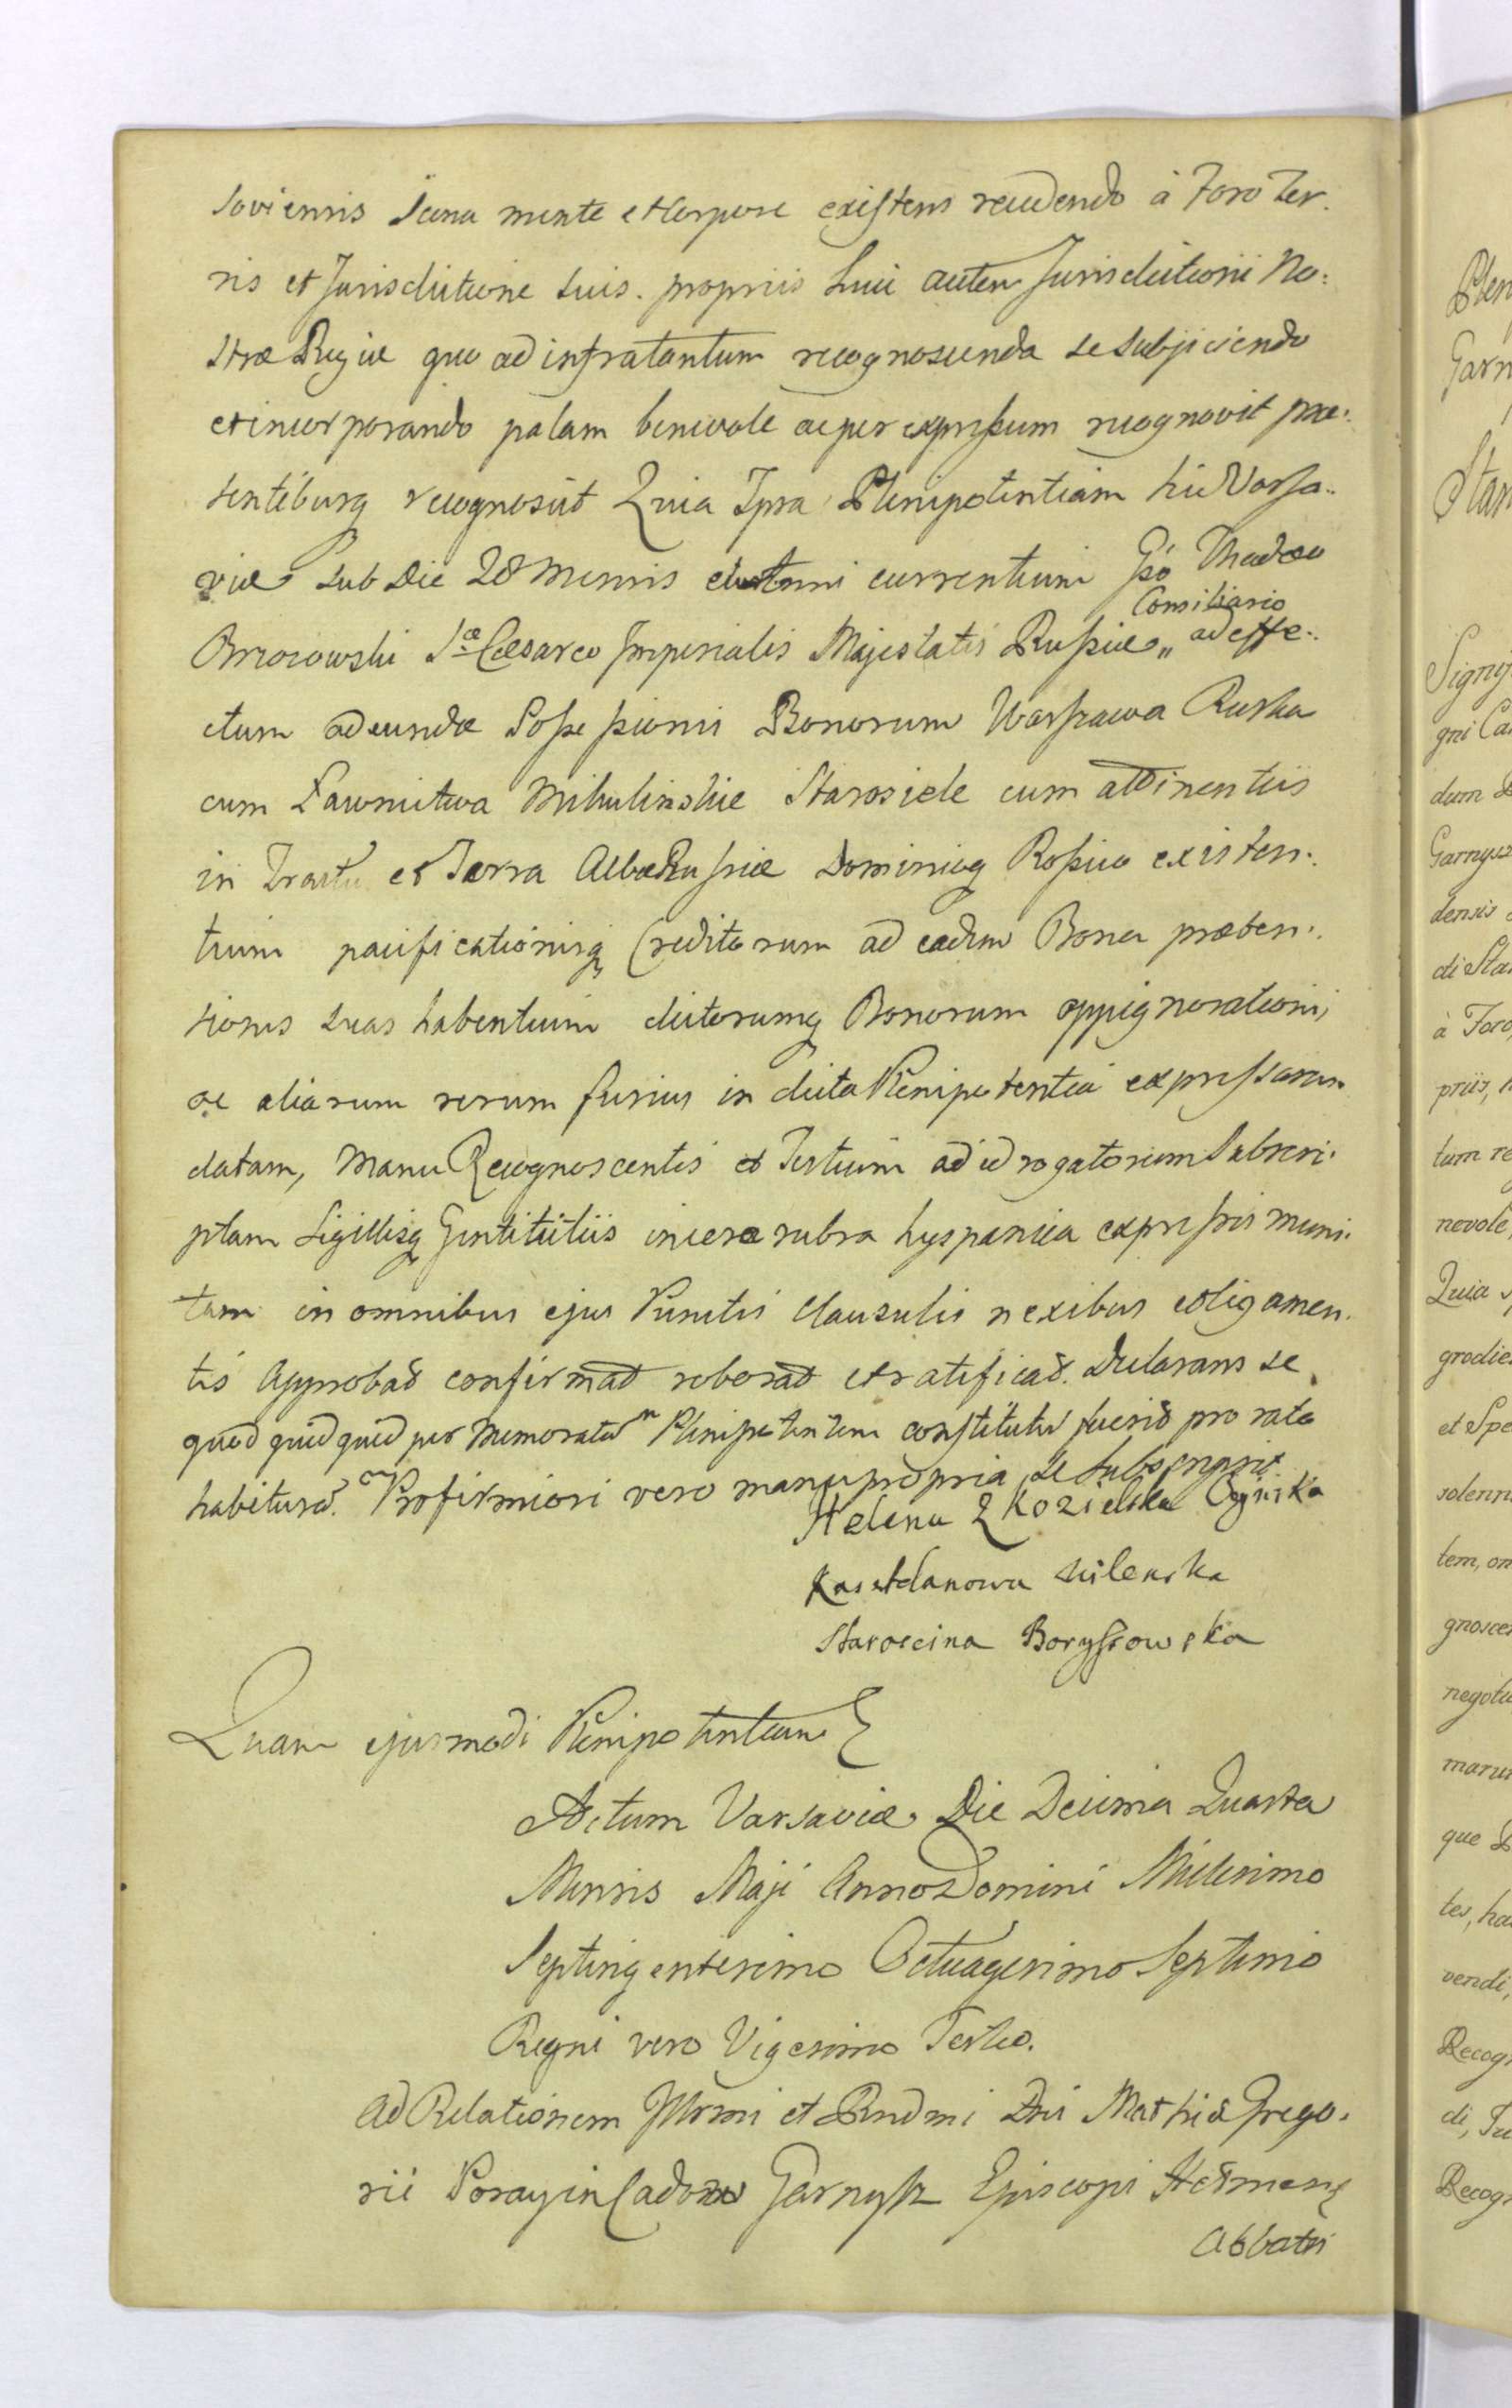 soviensis Sana mente et Corpore existens recedendo à Foro Ter.
ris et Jurisdictione suis propriis huic autem Jurisdictioni No:
stræ Regiæ quo ad infra tantum recognoscenda se subjiciendo
et incorporando palam benevole ac per expressum recognovit præ:
sentibusq recognoscit Quia Ipsa Plenipotentiam hic Varsa:
viæ sub Die 28 Mensis et Anni currentium Gso Thadæo
Consiliario
Brzozowski Sæ Cæsareo Imperialis Majestatis Russiæ „ ad effe:
ctum adeundæ Possessionis Bonorum Warszawa Ruska
cum Ławnictwa Mikulinskie Starosiele cum attinentiis
in Tractu et Terra Albæ Russiæ Dominioq Rossico existen:
tium pacificationisq Creditorum ad eadem Bona præten:
siones suas habentium dictorumq Bonorum oppignorationis,
ac aliarum rerum fusius in dicta Plenipotentia expressarum
datam, Manu Recognoscentis et Testium ad id rogatorum Subscri:
ptam Sigillisq Gentilitiis in cera rubra hyspanica expressis muni:
tam in omnibus ejus Punctis Clausulis nexibus et ligamen:
tis Approbat confirmat roborat et ratificat. Declarans se
quod quidquid per Memoratum Plenipotentem constitutum fuerit pro rato
habituram. Pro firmiori vero manu propria se subscripsit
Helena Z Kozielska Oginska
Kasztelanowa wilenska
Staroscina Boryssowska
Quam ejusmodi Plenipotentiam
Actum Varsaviæ Die Decima Quarta
Mensis Maji Anno Domini Millesimo
Septingentesimo Octuagesimo Septimo
Regni vero Vigesimo Tertio.
Ad Relationem Illrmi et Rndmi Dni Mathiæ Grego:
rii Poray in Garnysz Episcopi
Abbatis
Plen
Garn
Stan
Signif
gni Ca
dum
Garnysz
densis
di Sta
à Foro
priis, h
tum re
nevole,
Quia
grodie
et Spe
solenn
tem, om
gnosce
negotia
marum
que
tes, ha
vendi,
Recog
di, Tu
Recog